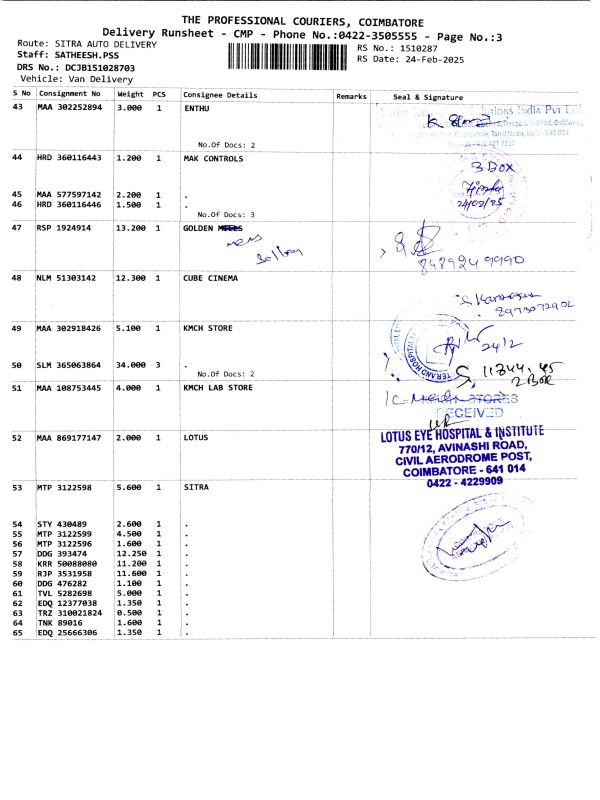 THE PROFESSIONAL COURIERS, COIMBATORE
Delivery Runsheet - CMP - Phone No.:0422-3505555 - Page No.:3
Route: SITRA AUTO DELIVERY
RS No.: 1510287
Staff: SATHEESH.PSS
RS Date: 24-Feb-2025
DRS No.: DCJB151028703
Vehicle: Van Delivery
S No Consignment No Weight PCS Consignee Details Remarks Seal & Signature
43 MAA 302252894 3.000 1 ENTHU
No.Of Docs: 2
44 HRD 360116443 1.200 1 MAK CONTROLS
3 Box
45 MAA 577597142 2.200 1 .
46 HRD 360116446 1.500 1 .
24/02/25
No.Of Docs: 3
47 RSP 1924914 13.200 1 GOLDEN
8489249990
48 NLM 51303142 12.300 1 CUBE CINEMA
8973072902
49 MAA 302918426 5.100 1 KMCH STORE
24/2
50 SLM 365063864 34.000 3 .
No.Of Docs: 2
11344, 45
2 Box
51 MAA 108753445 4.000 1 KMCH LAB STORE
STORES
RECEIVED
52 MAA 869177147 2.000 1 LOTUS
LOTUS EYE HOSPITAL & INSTITUTE
770/12, AVINASHI ROAD,
CIVIL AERODROME POST,
COIMBATORE - 641 014
0422 - 4229909
53 MTP 3122598 5.600 1 SITRA
54 STY 430489 2.600 1 .
55 MTP 3122599 4.500 1 .
56 MTP 3122596 1.600 1 .
57 DDG 393474 12.250 1 .
58 KRR 50088080 11.200 1 .
59 RJP 3531958 11.600 1 .
60 DDG 476282 1.100 1 .
61 TVL 5282698 5.000 1 .
62 EDQ 12377038 1.350 1 .
63 TRZ 310021824 0.500 1 .
64 TNK 89016 1.600 1 .
65 EDQ 25666306 1.350 1 .